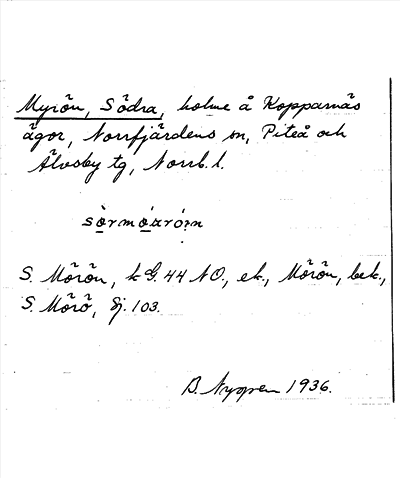 Myrön, Södra, holme å Kopparnäs
ägor, Norrfjärdens sn, Piteå och
Älvsby tg, Norrb. l.
S. Mörön, k G. 44 NO., ek., Mörön, bek.,
S. Mörö, Sj. 103.
B. Nygren 1936.